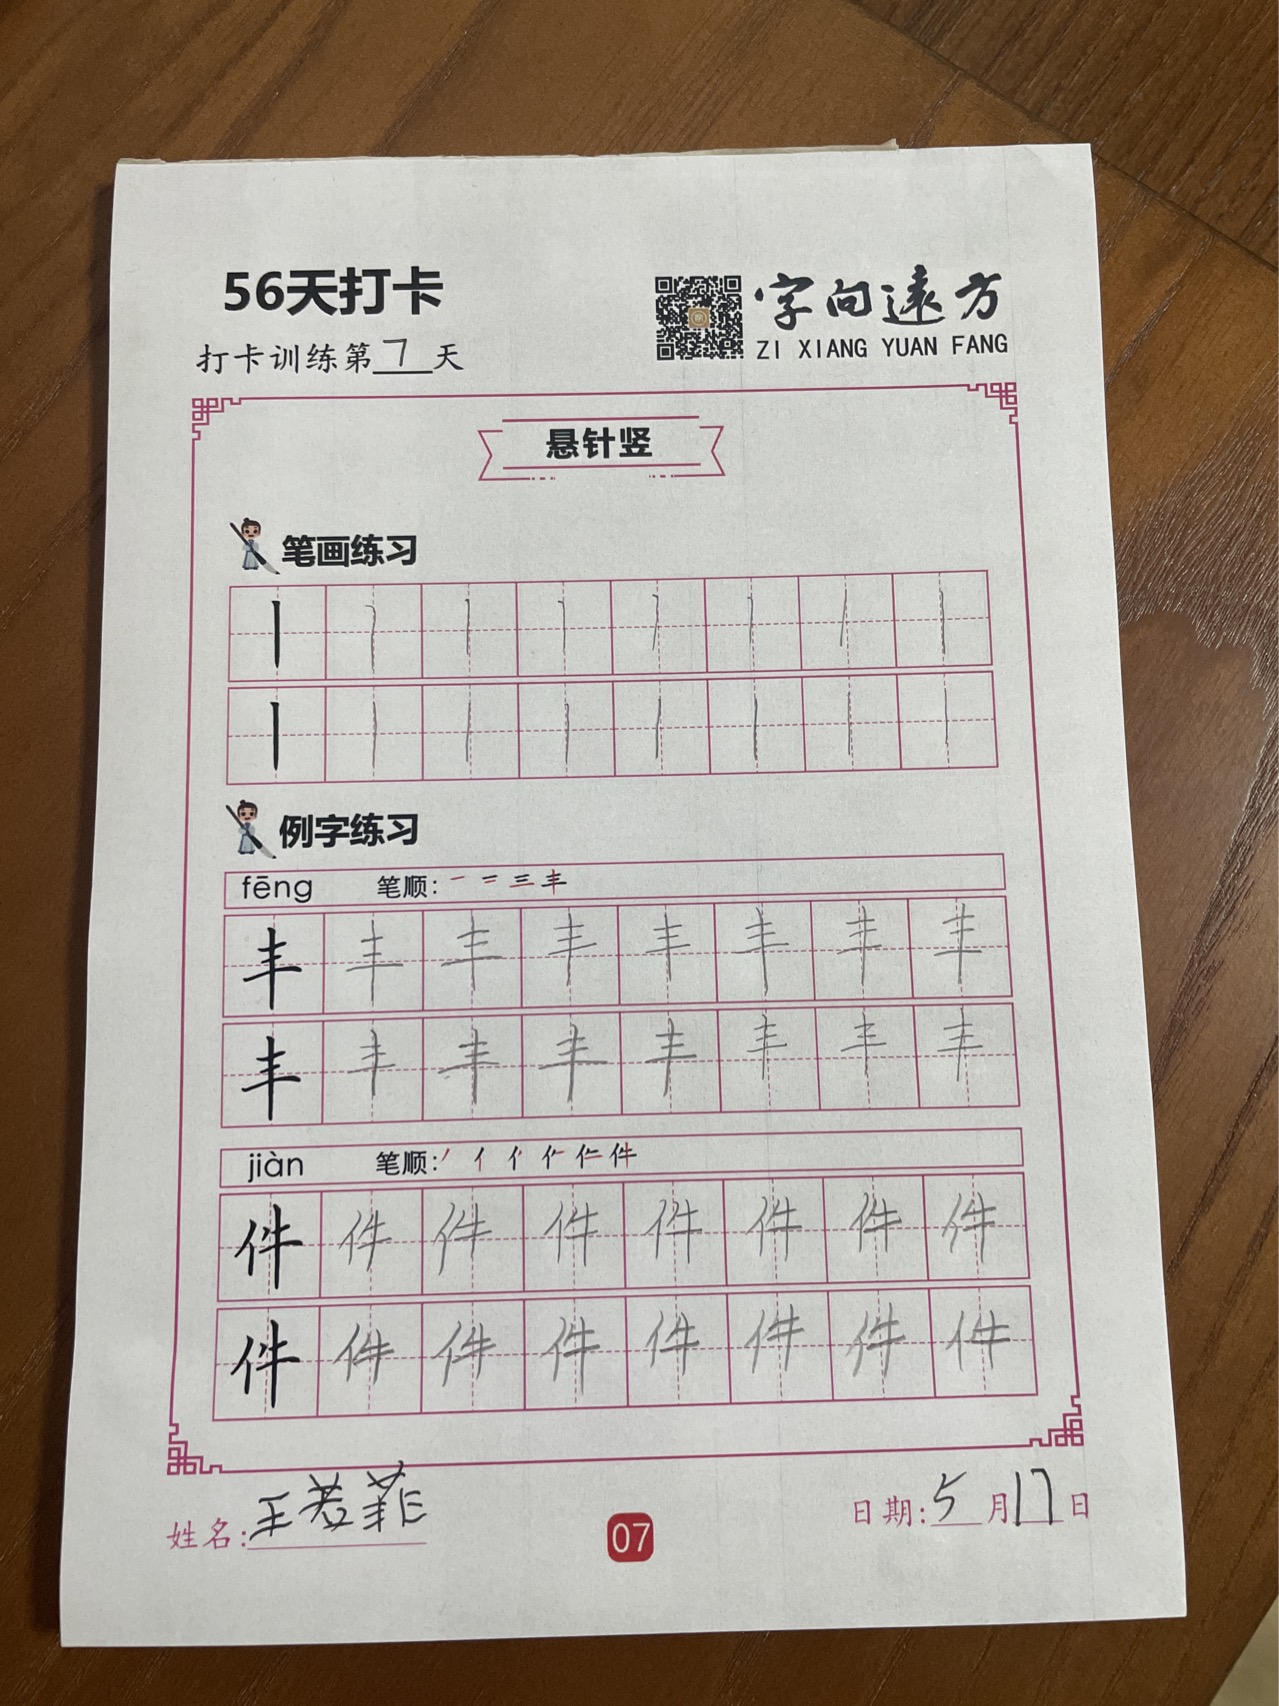 56天打卡
字向遠方
ZI XIANG YUAN FANG
打卡训练第7天
悬针竖
笔画练习
丨丨丨丨丨丨丨丨
丨丨丨丨丨丨丨丨
例字练习
fēng 笔顺: 一 二 三 丰
丰丰丰丰丰丰丰丰
丰丰丰丰丰丰丰丰
jiàn 笔顺: 件
件件件件件件件件
件件件件件件件件
姓名:王若菲
07
日期:5月17日